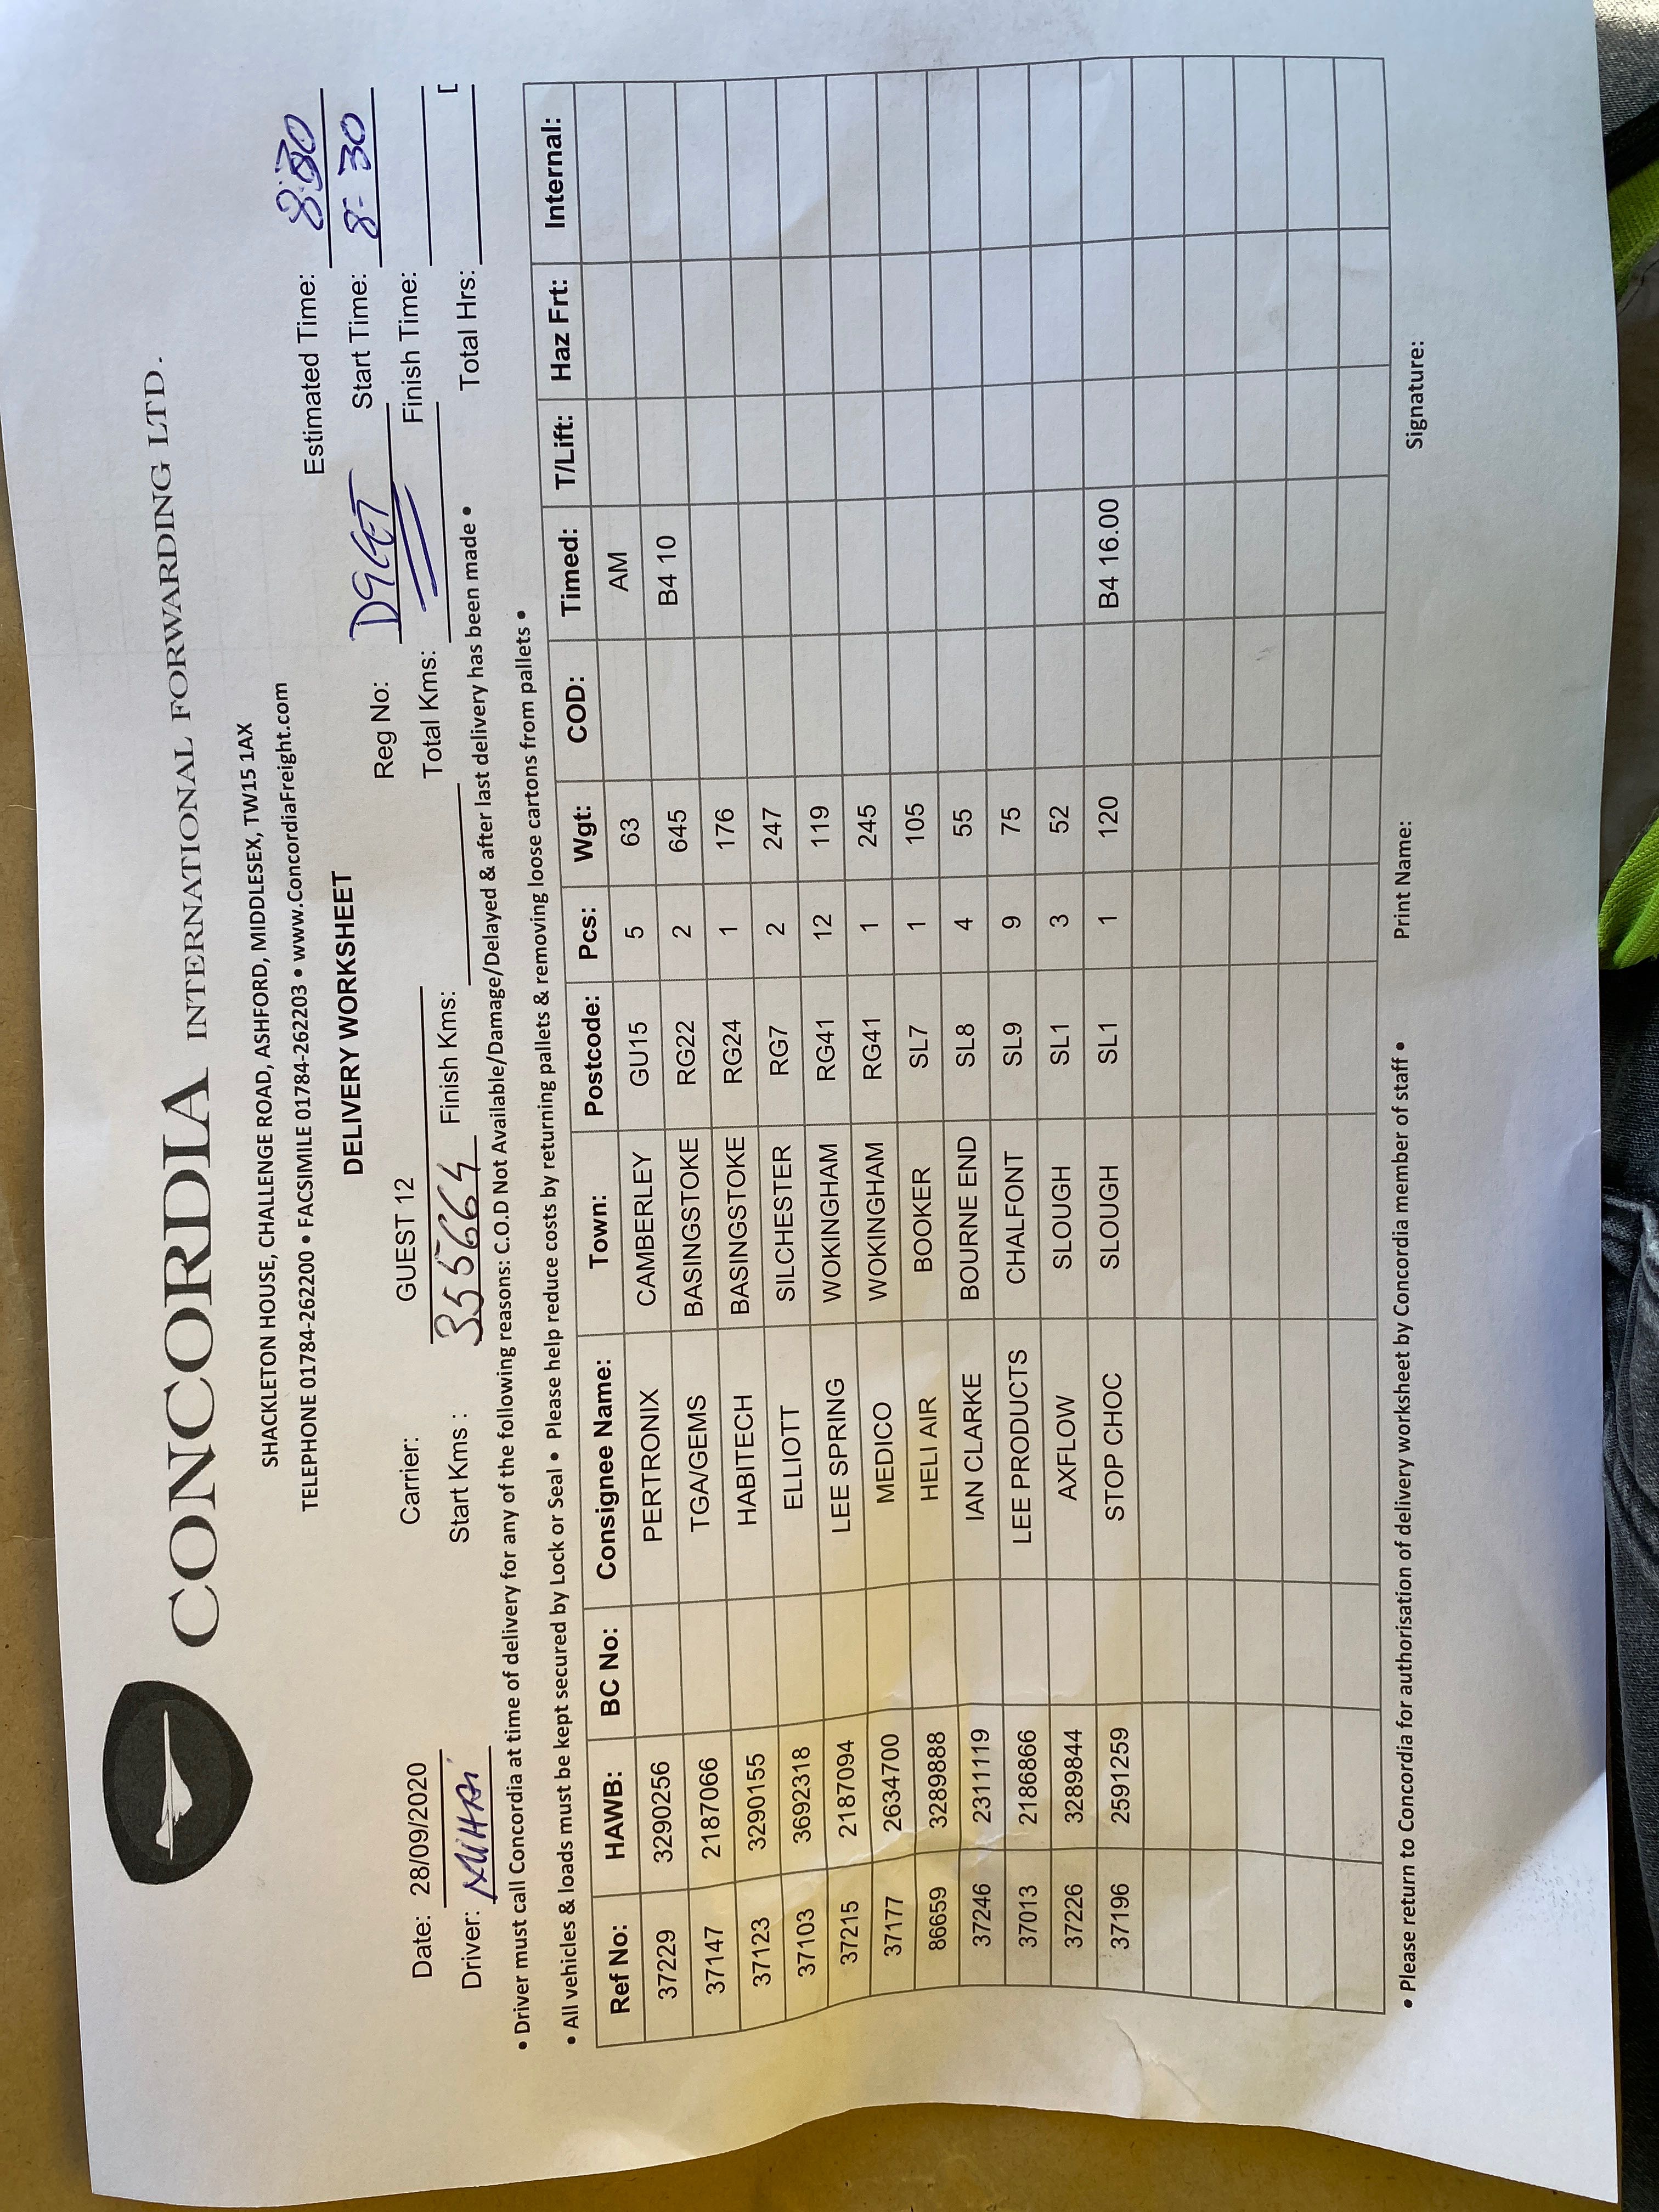 CONCORDIA INTERNATIONAL FORWARDING LTD.
SHACKLETON HOUSE, CHALLENGE ROAD, ASHFORD, MIDDLESEX, TW15 1AX
TELEPHONE 01784-262200 • FACSIMILE 01784-262203 • www.ConcordiaFreight.com
DELIVERY WORKSHEET
Estimated Time:
Date: 28/09/2020 Carrier: GUEST 12 Reg No: Start Time: 8-30
Driver: MIHAI Start Kms : 355664 Finish Kms: Total Kms: Finish Time:
Total Hrs:
• Driver must call Concordia at time of delivery for any of the following reasons: C.O.D Not Available/Damage/Delayed & after last delivery has been made •
• All vehicles & loads must be kept secured by Lock or Seal • Please help reduce costs by returning pallets & removing loose cartons from pallets •
Ref No: HAWB: BC No: Consignee Name: Town: Postcode: Pcs: Wgt: COD: Timed: T/Lift: Haz Frt: Internal:
37229 3290256 PERTRONIX CAMBERLEY GU15 5 63 AM
37147 2187066 TGA/GEMS BASINGSTOKE RG22 2 645 B4 10
37123 3290155 HABITECH BASINGSTOKE RG24 1 176
37103 3692318 ELLIOTT SILCHESTER RG7 2 247
37215 2187094 LEE SPRING WOKINGHAM RG41 12 119
37177 2634700 MEDICO WOKINGHAM RG41 1 245
86659 3289888 HELI AIR BOOKER SL7 1 105
37246 2311119 IAN CLARKE BOURNE END SL8 4 55
37013 2186866 LEE PRODUCTS CHALFONT SL9 9 75
37226 3289844 AXFLOW SLOUGH SL1 3 52
37196 2591259 STOP CHOC SLOUGH SL1 1 120 B4 16.00
• Please return to Concordia for authorisation of delivery worksheet by Concordia member of staff • Print Name: Signature: